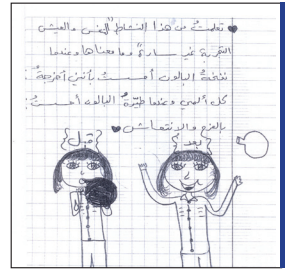 تعلمت من هذا النشاط النفس والعيش
التجربة غير سارة وما معناها وعندما
نفخة البالون أحسست بأنني أخرجة
كل ألمي وعندما طيرة البالون أحسست
بالفرح والإنتعاش
{قبل} {بعد}